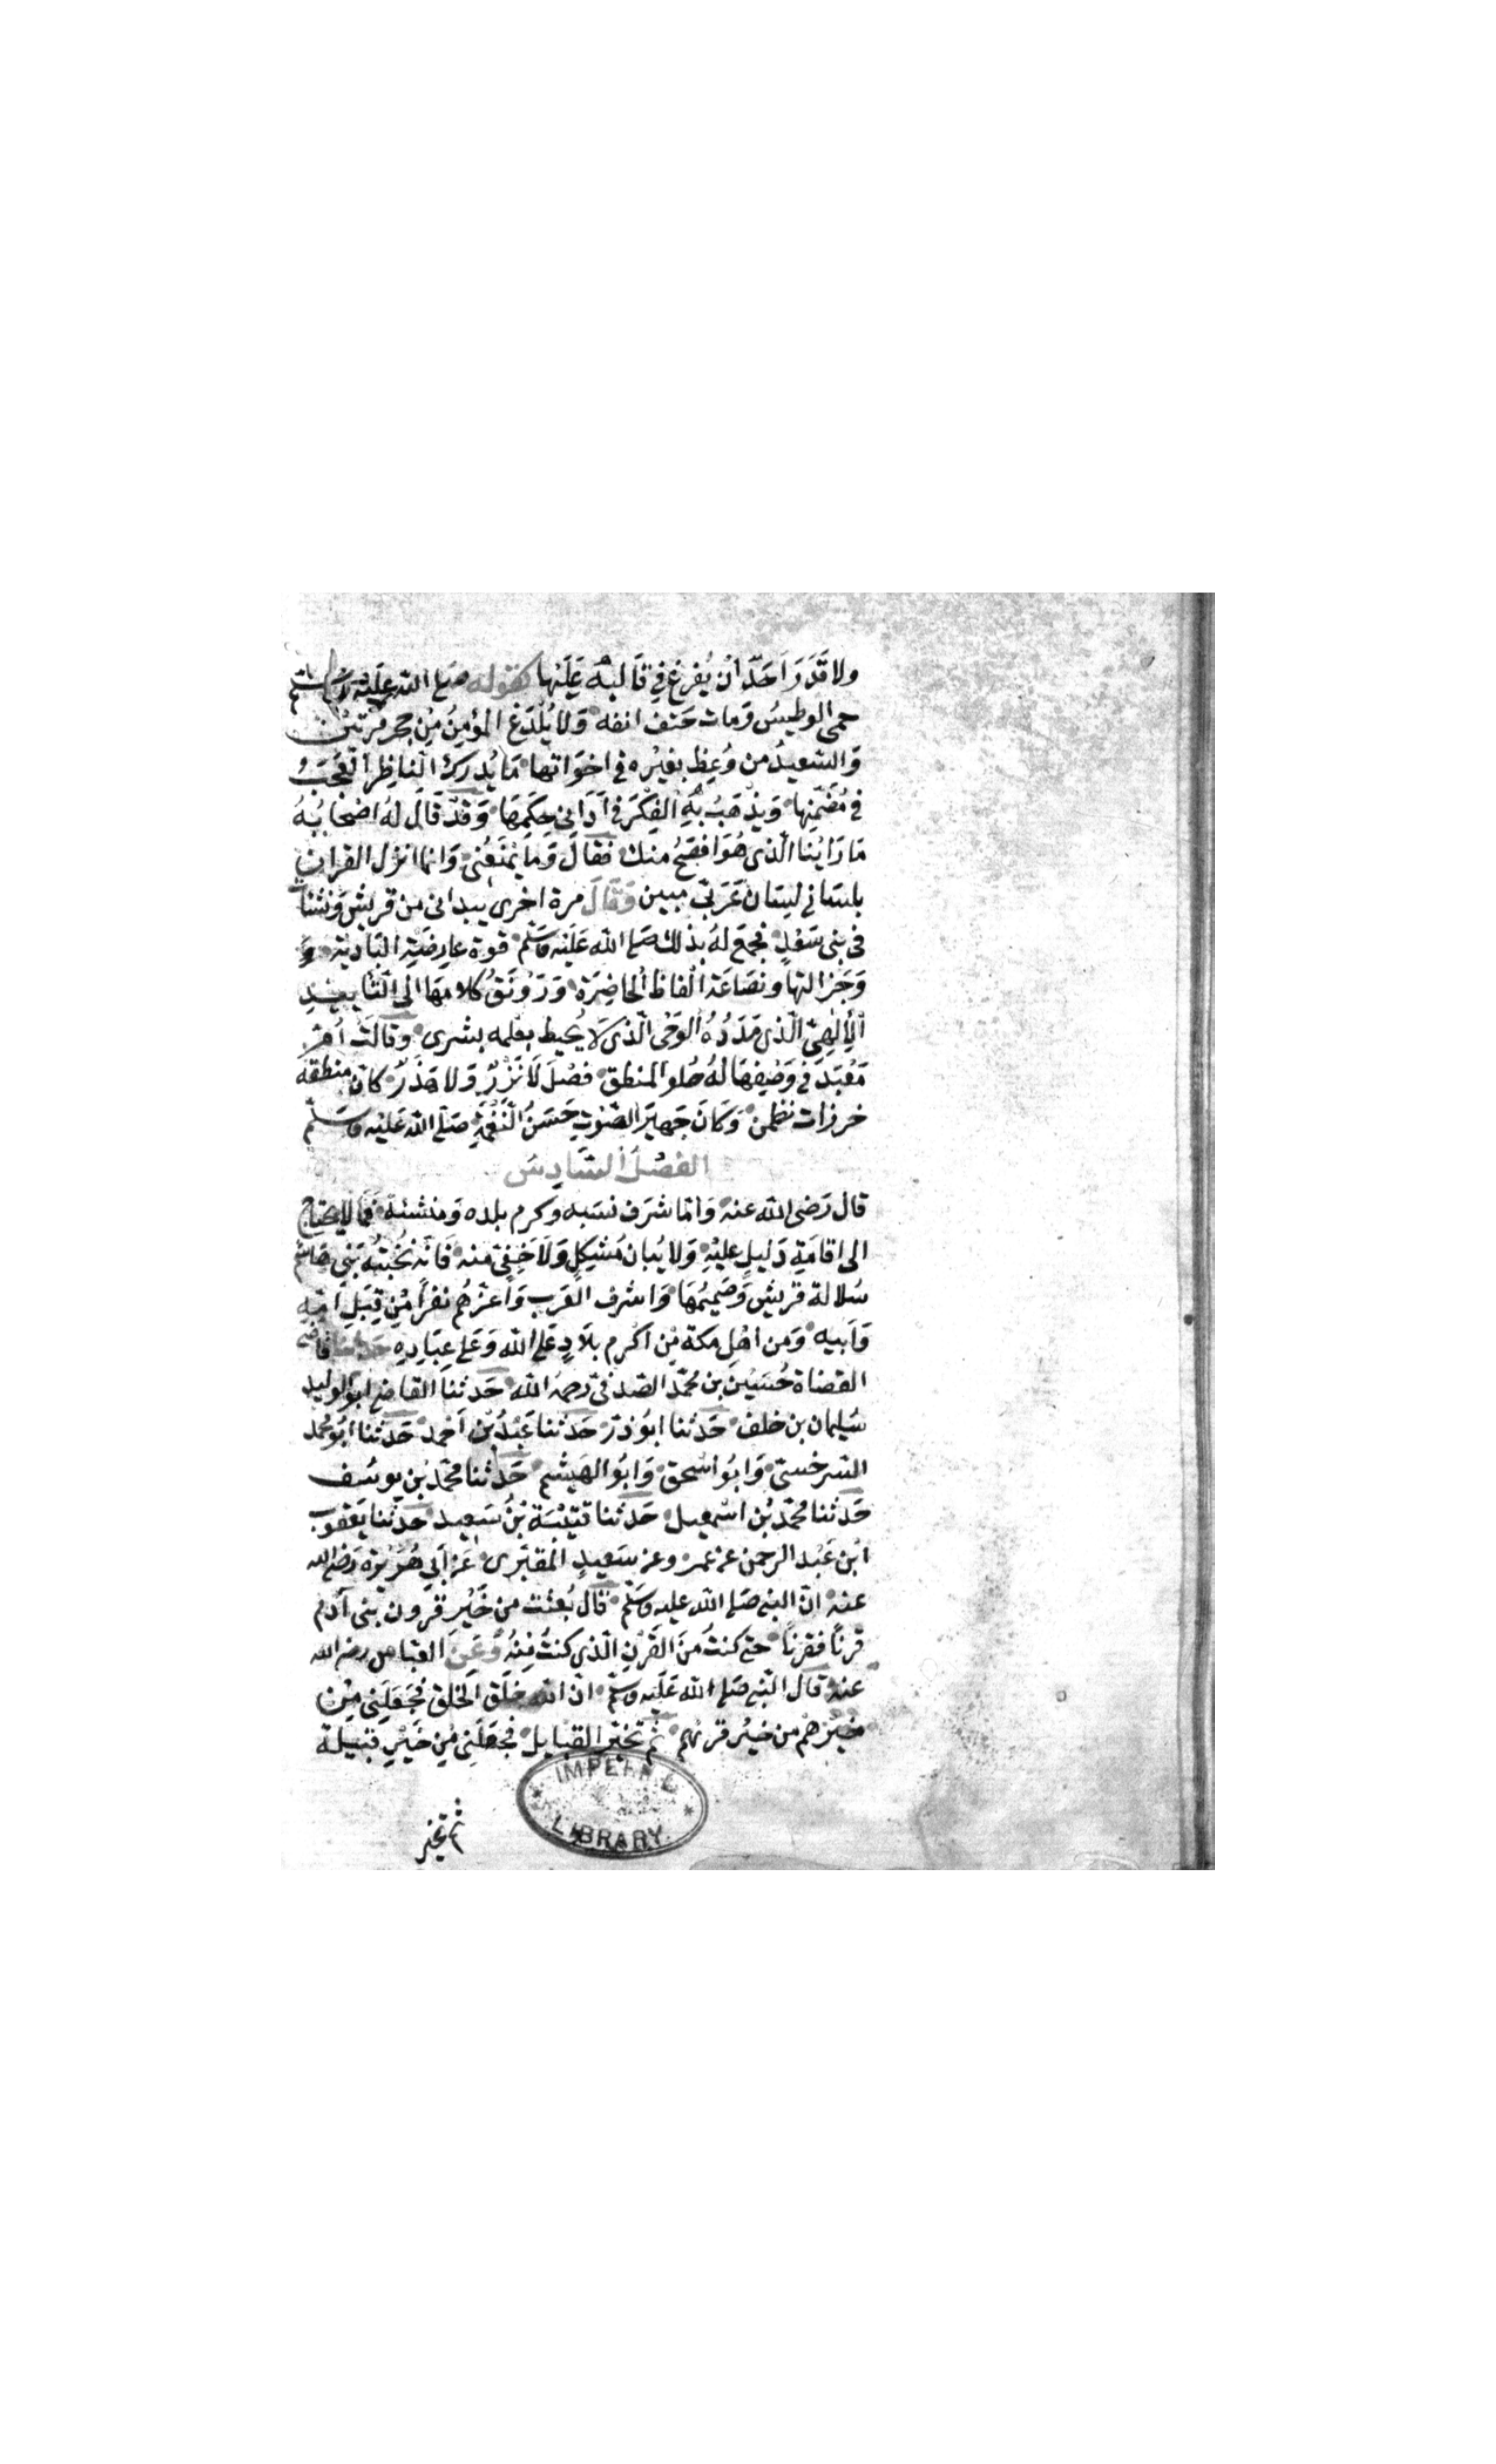 ولا قَدَرَ اَحَدٌ ان يُفرغ في قالبه عَلَيْها كقوله صلى الله عليه وسلم
حمى الوطيسُ وَمات حَتف انفه وَلا يُلْدَغ المؤمِنُ مِن جحرٍ مرّتين
وَالسّعيدُ من وُعِظ بغيْره في اخوَاتها مَا يُدرك النّاظِرُ العَجَبَ
في مُضَمّنِها وَيذهَبُ به الفِكَر في اَدَانى حِكَمِهَا وَقَدْ قَالَ لهُ اصْحَابُهُ
مَا رَايْنا الّذى هُوَ افصَحُ منك فَقالَ وَمَا يَمْنَعُنى وَانما انزل القرآن
بلسانى لِسَان عَرَبيّ مبين وَقَالَ مرة اخرى بيد انى من قريش وَنشات
في بنى سَعْدٍ فجمع لهُ بذلك صَلى الله عَلَيْه وسَلّم قوة عارِضَةِ البَاديَة وَ
وَجَزالتها ونصَاعَة الفاظ الحاضِرَة وَرَوْنَقُ كلامهَا الى التّاييدِ
الْاِلٰهِىّ الّذى مَدَدُهُ الوَحْى الّذى لَا يُحيط بعلمه بشرى وقالَتْ اُمّ
مَعْبَدَ في وَصْفِهَا لهُ حُلو المنطق فصْل لَا نَزْرٌ وَلا هَذَرٌ كانَ منطقهُ
خرزات نظمن وَكَانَ جَهيرَ الصّوْتِ حَسَنُ النّغْمَةِ صَلّى الله عَلَيْه وسَلّم
الفصْل السّادس
قال رَضى الله عنه وَامّا شرَف نسَبه وكرم بلده وَمنشئه فمّا لا يحتاج
الى اقامَةِ دَليلٍ عليْهِ وَلا بُيان مُشْكِلٍ وَلَا خَفىّ منه فَانّهُ نُخْبَتُهُ بَنى هاشم
سُلالة قريش وَصَميمُهَا وَاشرف العَرب وَاعَزّهُم نفرًا مِنْ قِبَلِ امّه
وَاَبيه وَمن اهْل مكة مِنْ اكْرم بلَادٍ عَلى الله وَعَلى عِبَادِهِ حدثنا قاضى
القضاة حُسَيْن بن محمّد الصّدفىّ رحمهُ الله حَدثنا القاضى ابو الوليد
سُليمان بن خلف حَدثنا ابُو ذرّ حَدثنا عَبْدُ بْن اَحمد حَدثنا اَبُو محمد
السّرخسىّ وَابُو اسْحق وَابُو الهَيْثم حَدثنا محمّد بن يوسُف
حَدثنا محمّد بْن اسْمعيل حَدثنا قتيْبَة بْنُ سَعيد حَدثنا يَعْقوب
ابْن عَبْد الرحمن عن عمرٍو عن سَعيدٍ المَقبُرى عَن اَبى هُرَيْرَة رَضى الله
عنه انّ النبى صَلى الله عليه وسَلّم قال بُعثت من خَيْر قرون بنى آدم
قرنًا فقرنًا حتى كنتُ مِنَ القَرْنِ الّذى كنتُ مِنْهُ وَعَنِ العبّاس رضى الله
عنه قال النّبى صَلى الله عَلَيْه وسَلّم انّ الله خَلَق الخلق فجعَلَنى مِنْ
خيْرهْم من خيْر قرنهم ثم تخيّر القبايل فجعَلَنى مِنْ خَيْرِ قبيلة
ثم تخير
IMPERIAL
LIBRARY